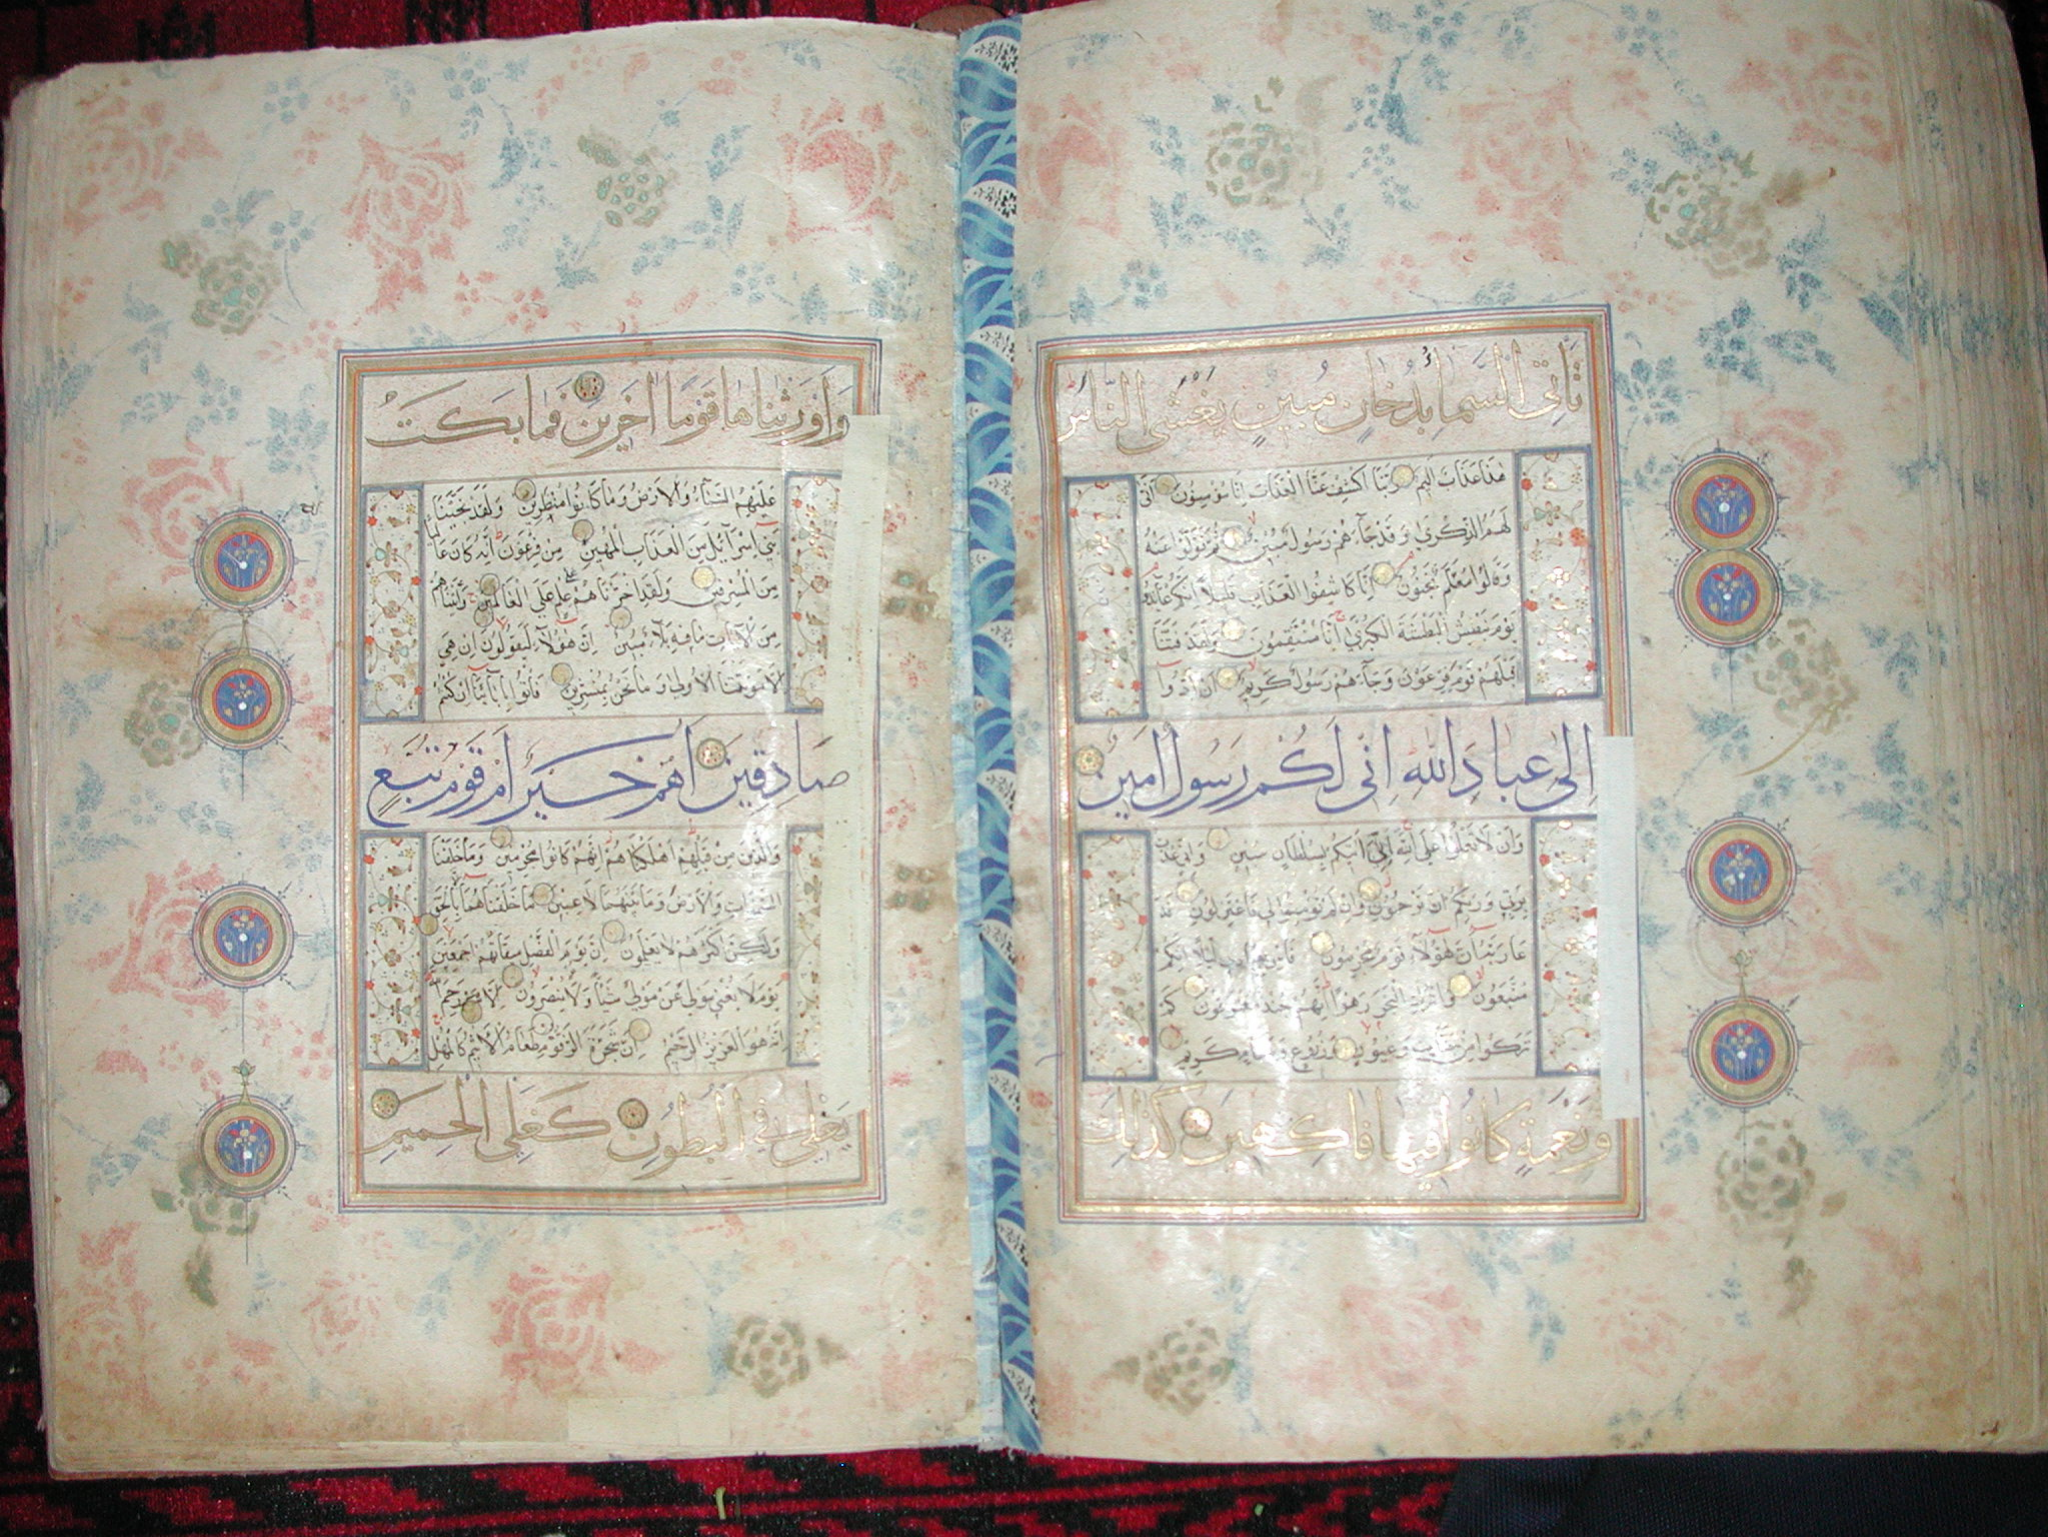 تَأتِي السَّمَاءُ بِدُخَانٍ مُبِينٍ يَغْشَى النَّاسَ
هَذَا عَذَابٌ اَلِيمٌ رَبَّنَا اكْشِفْ عَنَّا الْعَذَابَ اِنَّا مُؤْمِنُونَ اَنَّى
لَهُمُ الذِّكْرَى وَقَدْ جَاءَهُمْ رَسُولٌ مُبِينٌ ثُمَّ تَوَلَّوْا عَنْهُ
وَقَالُوا مُعَلَّمٌ مَجْنُونٌ اِنَّا كَاشِفُوا الْعَذَابِ قَلِيلًا اِنَّكُمْ عَائِدُونَ
يَوْمَ نَبْطِشُ الْبَطْشَةَ الْكُبْرَى اِنَّا مُنْتَقِمُونَ وَلَقَدْ فَتَنَّا
قَبْلَهُمْ قَوْمَ فِرْعَوْنَ وَجَاءَهُمْ رَسُولٌ كَرِيمٌ اَنْ اَدُّوا
اِلَىَّ عِبَادَ اللهِ اِنِّى لَكُمْ رَسُولٌ اَمِينٌ
وَاَنْ لَا تَعْلُوا عَلَى اللهِ اِنِّى اٰتِيكُمْ بِسُلْطَانٍ مُبِينٍ وَاِنِّى عُذْتُ
بِرَبِّي وَرَبِّكُمْ اَنْ تَرْجُمُونِ وَاِنْ لَمْ تُؤْمِنُوا لِي فَاعْتَزِلُونِ فَدَ
عَا رَبَّهُ اَنَّ هٰؤُلَاءِ قَوْمٌ مُجْرِمُونَ فَاَسْرِ بِعِبَادِي لَيْلًا اِنَّكُمْ
مُتَّبَعُونَ وَاتْرُكِ الْبَحْرَ رَهْوًا اِنَّهُمْ جُنْدٌ مُغْرَقُونَ كَمْ
تَرَكُوا مِنْ جَنَّاتٍ وَعُيُونٍ وَزُرُوعٍ وَمَقَامٍ كَرِيمٍ
وَنَعْمَةٍ كَانُوا فِيهَا فَاكِهِينَ كَذٰلِكَ
وَاَوْرَثْنَاهَا قَوْمًا اٰخَرِينَ فَمَا بَكَتْ
عَلَيْهِمُ السَّمَاءُ وَالْاَرْضُ وَمَا كَانُوا مُنْظَرِينَ وَلَقَدْ نَجَّيْنَا
بَنِي اِسْرَائِيلَ مِنَ الْعَذَابِ الْمُهِينِ مِنْ فِرْعَوْنَ اِنَّهُ كَانَ عَالِيًا
مِنَ الْمُسْرِفِينَ وَلَقَدِ اخْتَرْنَاهُمْ عَلَى عِلْمٍ عَلَى الْعَالَمِينَ وَاٰتَيْنَاهُمْ
مِنَ الْاٰيَاتِ مَا فِيهِ بَلَاءٌ مُبِينٌ اِنَّ هٰؤُلَاءِ لَيَقُولُونَ اِنْ هِيَ
اِلَّا مَوْتَتُنَا الْاُولَى وَمَا نَحْنُ بِمُنْشَرِينَ فَأْتُوا بِاٰبَائِنَا اِنْ كُنْتُمْ
صَادِقِينَ اَهُمْ خَيْرٌ اَمْ قَوْمُ تُبَّعٍ
وَالَّذِينَ مِنْ قَبْلِهِمْ اَهْلَكْنَاهُمْ اِنَّهُمْ كَانُوا مُجْرِمِينَ وَمَا خَلَقْنَا
السَّمٰوَاتِ وَالْاَرْضَ وَمَا بَيْنَهُمَا لَاعِبِينَ مَا خَلَقْنَاهُمَا اِلَّا بِالْحَقِّ
وَلٰكِنَّ اَكْثَرَهُمْ لَا يَعْلَمُونَ اِنَّ يَوْمَ الْفَصْلِ مِيقَاتُهُمْ اَجْمَعِينَ
يَوْمَ لَا يُغْنِي مَوْلًى عَنْ مَوْلًى شَيْئًا وَلَا هُمْ يُنْصَرُونَ اِلَّا مَنْ رَحِمَ اللهُ
اِنَّهُ هُوَ الْعَزِيزُ الرَّحِيمُ اِنَّ شَجَرَةَ الزَّقُّومِ طَعَامُ الْاَثِيمِ كَالْمُهْلِ
يَغْلِي فِي الْبُطُونِ كَغَلْيِ الْحَمِيمِ